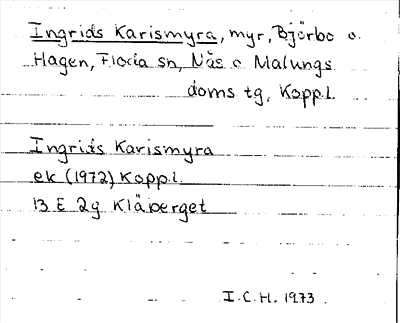 Ingrids Karismyra, myr, Björbo o.
Hagen, Floda sn, Nås o Malungs
doms tg, Koppl.
Ingrids Karismyra
ek (1972) Koppl.
13 E 2g Klåberget
I.C.H. 1973.